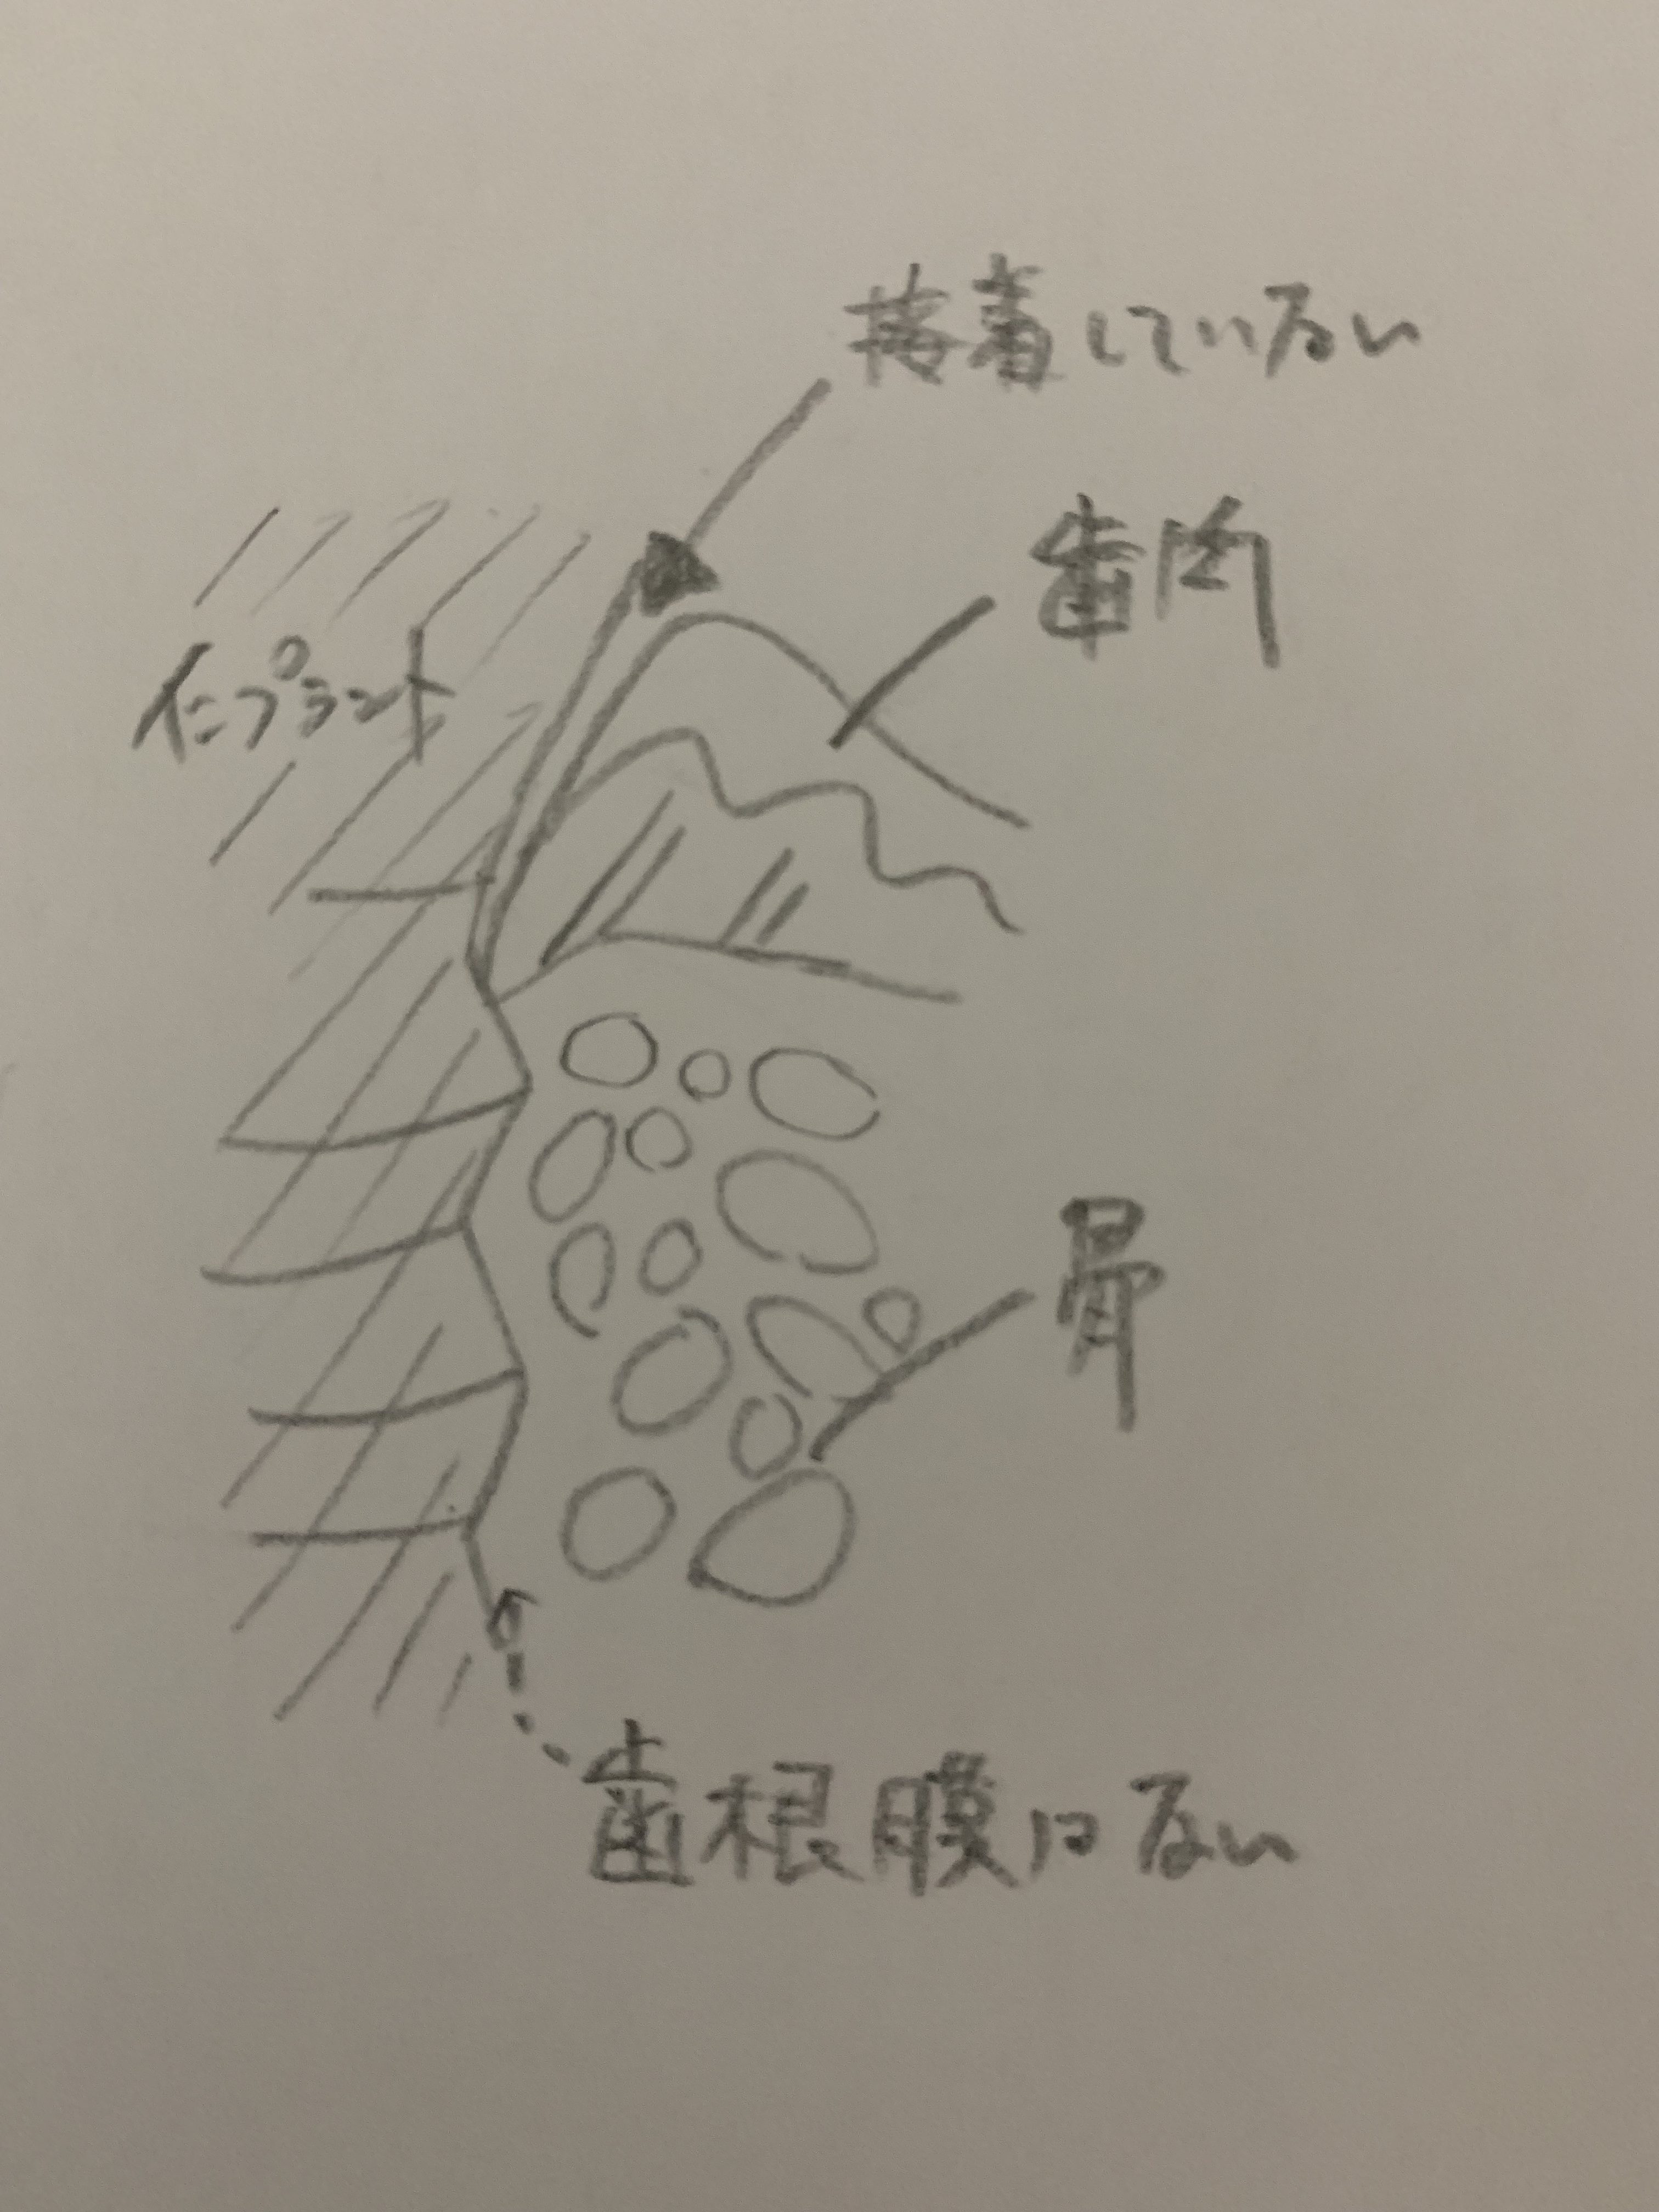 接着していない
歯肉
インプラント
骨
歯根膜はない